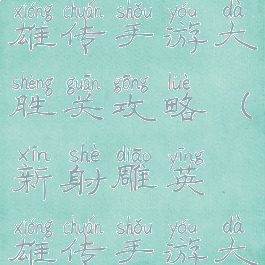 xióng chuán shǒu yóu dà
雄传手游大
shèng guān gōng lüè
胜关攻略（
xīn shè diāo yīng
新射雕英
xióng chuán shǒu yóu dà
雄传手游大